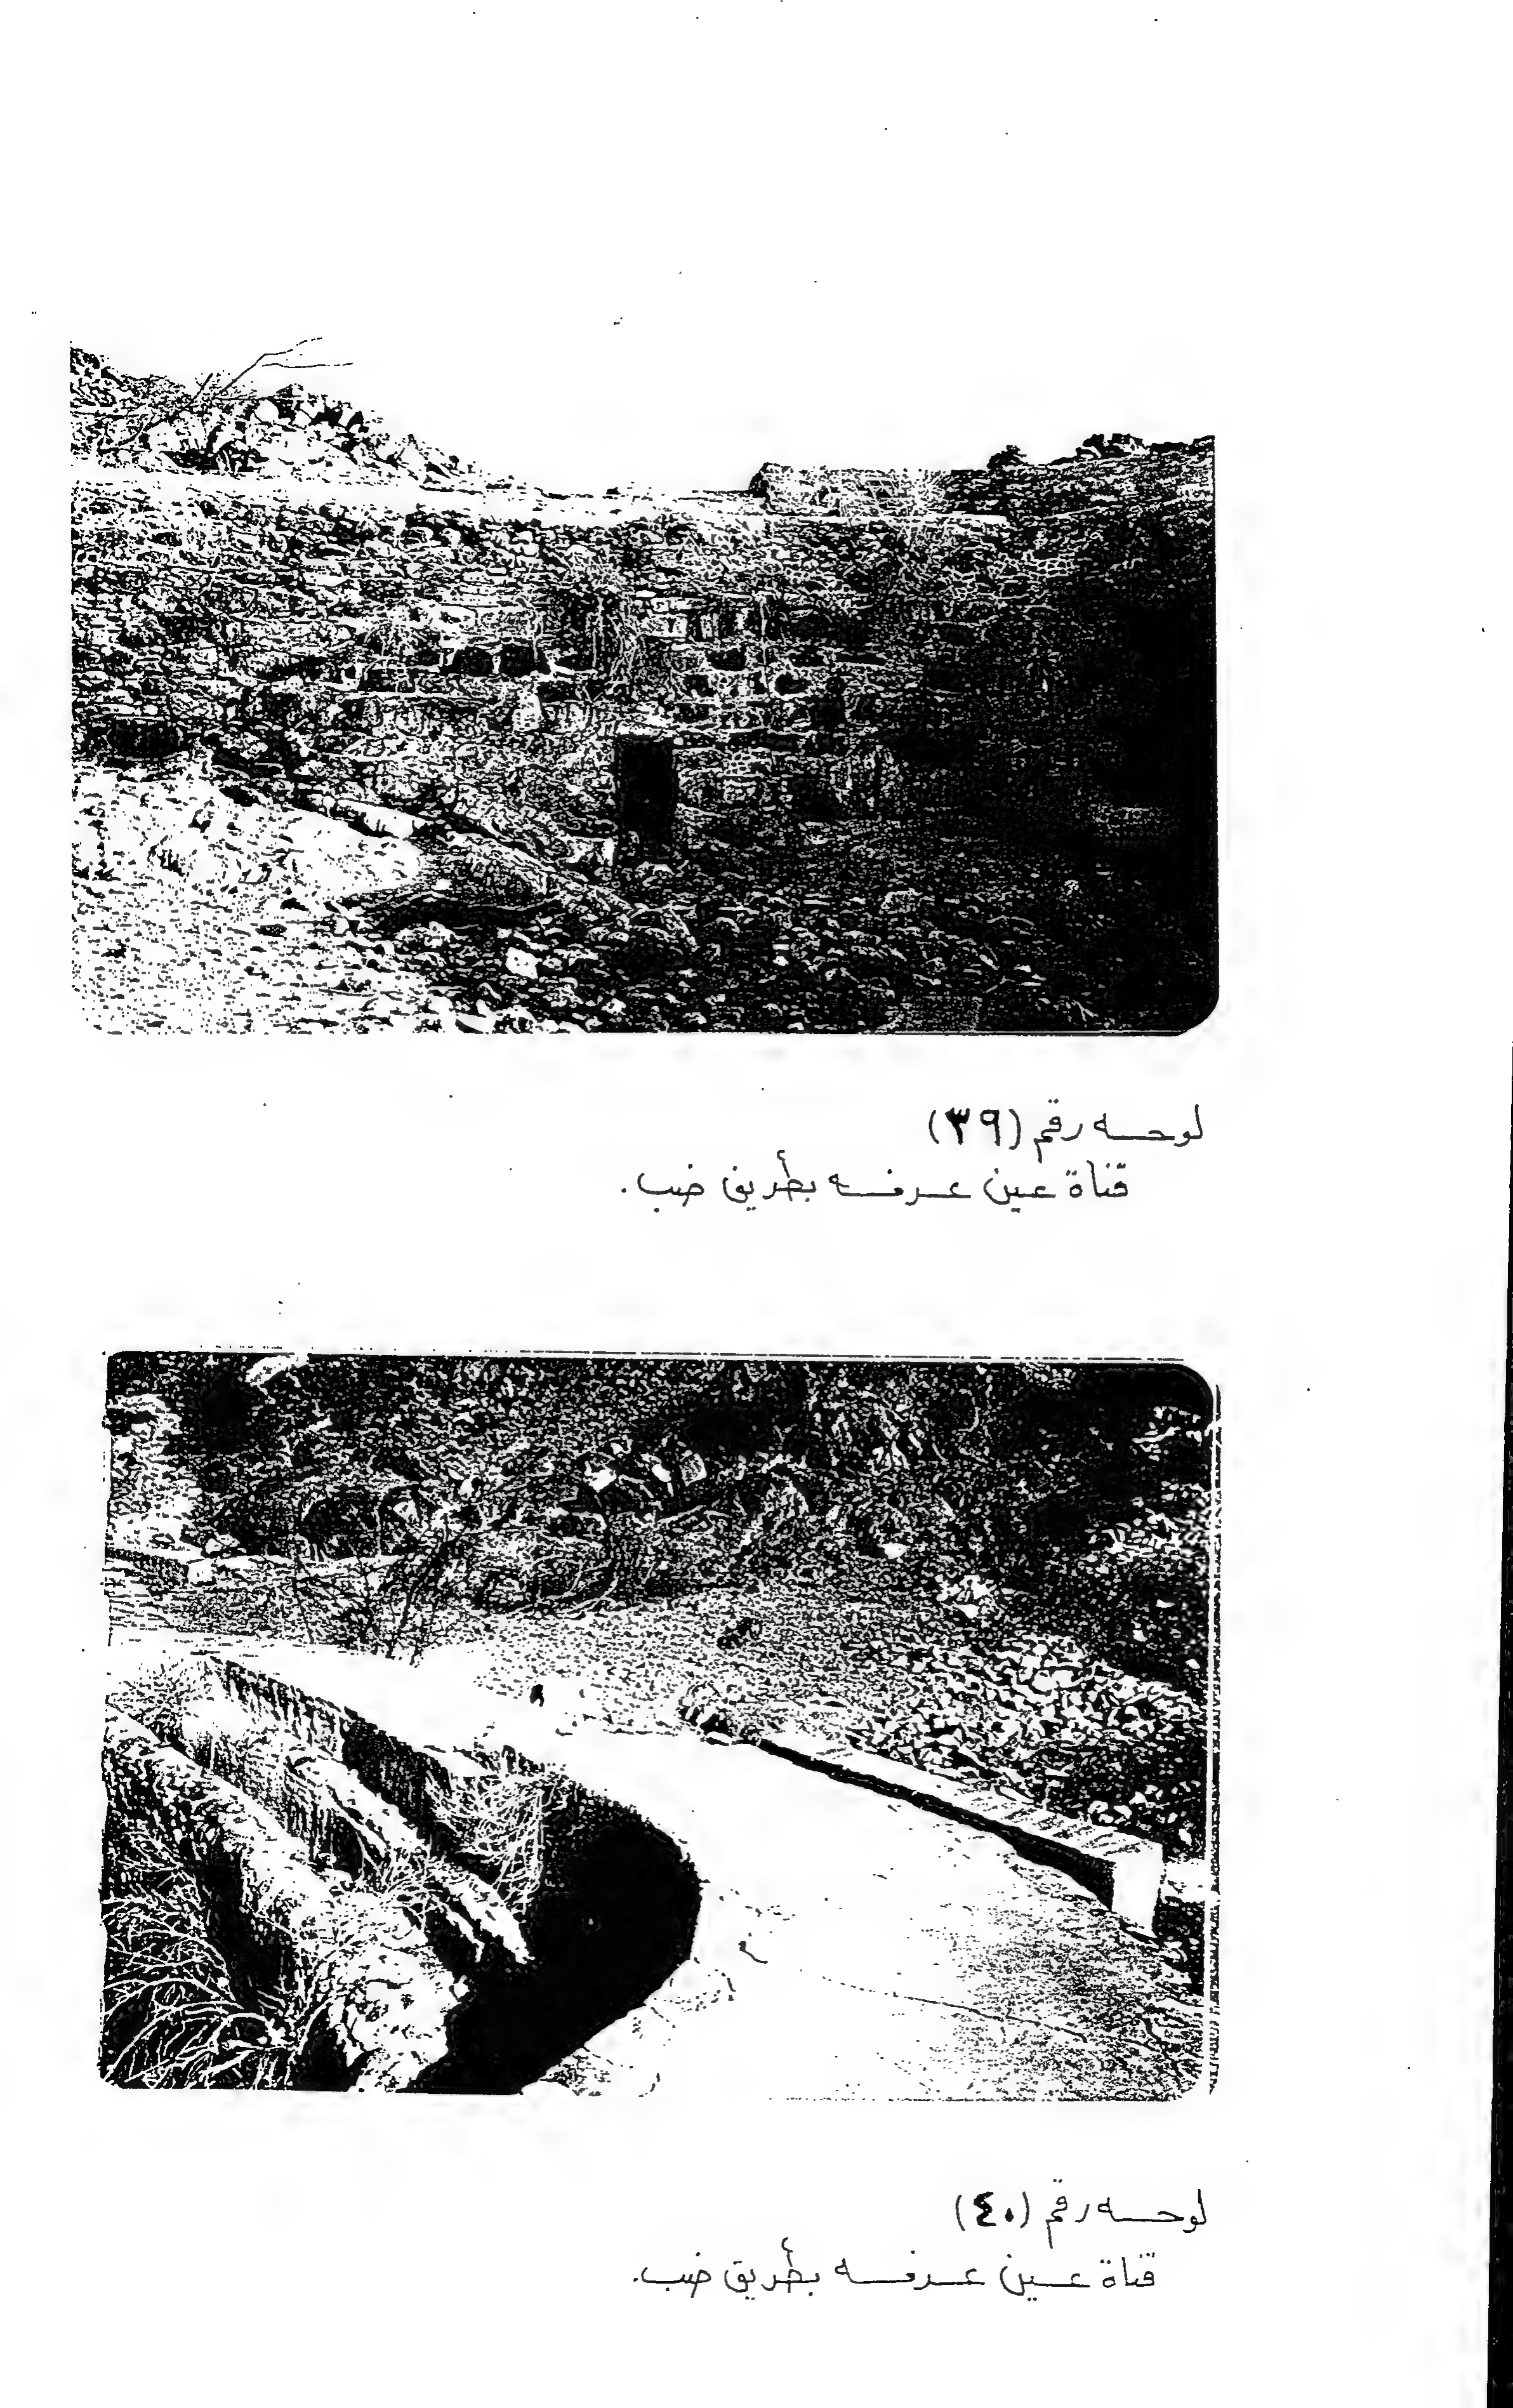 لوحه رقم (٣٩)
قناة عين عرفه بطريق ضب.
لوحه رقم (٤٠)
قناة عين عرفه بطريق ضب.